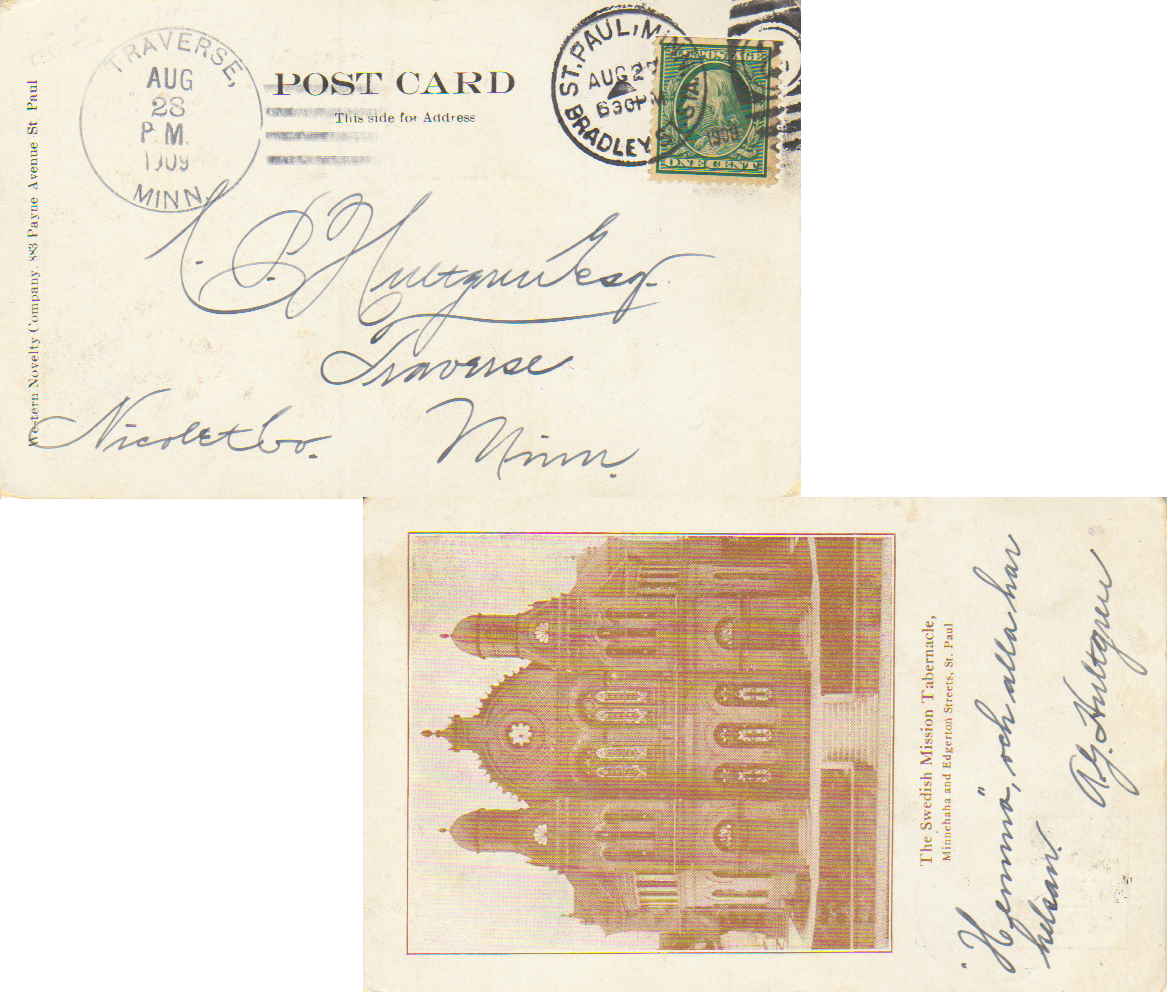 TRAVERSE,
AUG
28
P.M.
1909
MINN.
POST CARD
This side for Address
ST. PAUL, MINN.
AUG 27
630PM
BRADLEY ST. STA.
1909
POSTAGE
ONE CENT
Western Novelty Company, 883 Payne Avenue St Paul
C. P. Hultgren Esq.
Traverse
Nicolet Co. Minn.
The Swedish Mission Tabernacle,
Minnehaha and Edgerton Streets, St. Paul
Hemma, och alla har
helsan.
A. G. Hultgren